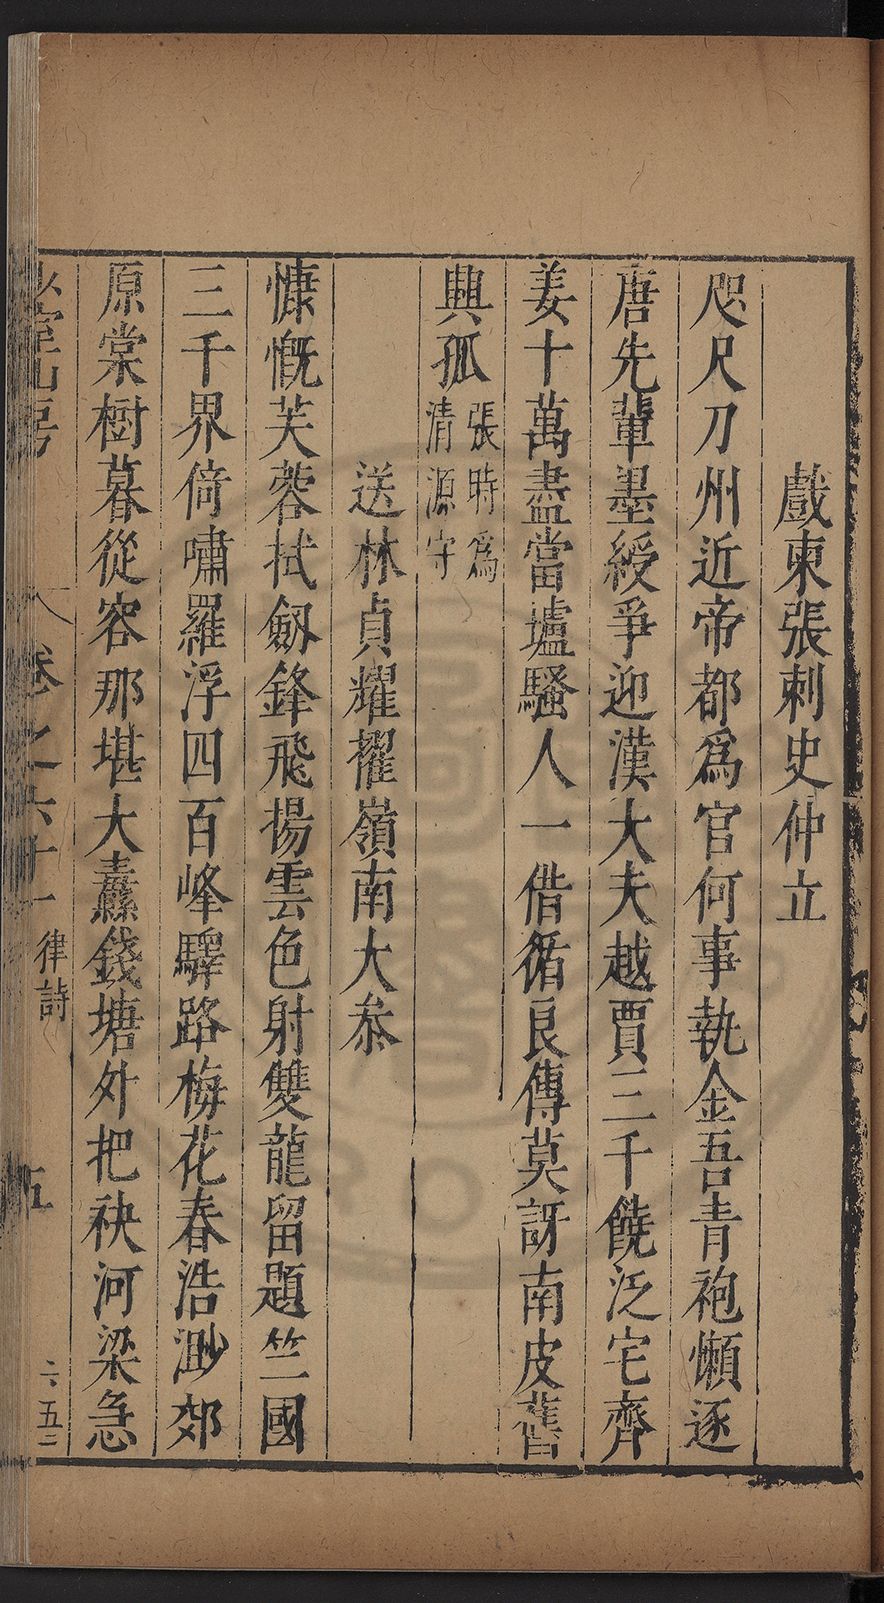 戲柬張刺史仲立
咫尺刀州近帝都爲官何事執金吾青袍懶逐
唐先輩墨綬爭迎漢大夫越賈三千饒泛宅齊
姜十萬盡當壚騷人一借循良傳莫訝南皮舊
興孤
張時爲
清源守
送林貞耀擢嶺南大叅
慷慨芙蓉拭劔鋒飛揚雲色射雙龍留題竺國
三千界倚嘯羅浮四百峰驛路梅花春浩渺郊
原棠樹暮從容那堪大纛錢塘外把袂河梁急
卷之六十一
律詩
五
六五二